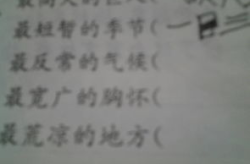 最短暂的季节(一日
最反常的气候(
最宽广的胸怀(
最荒凉的地方(